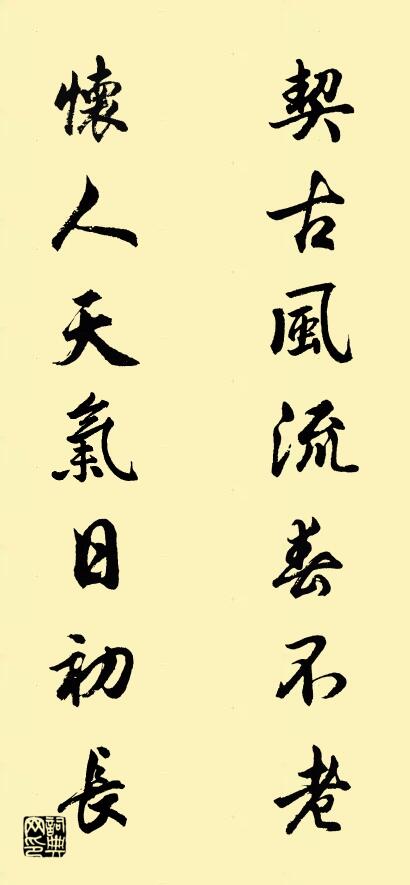 契古風流春不老
懷人天氣日初長
詞典网印